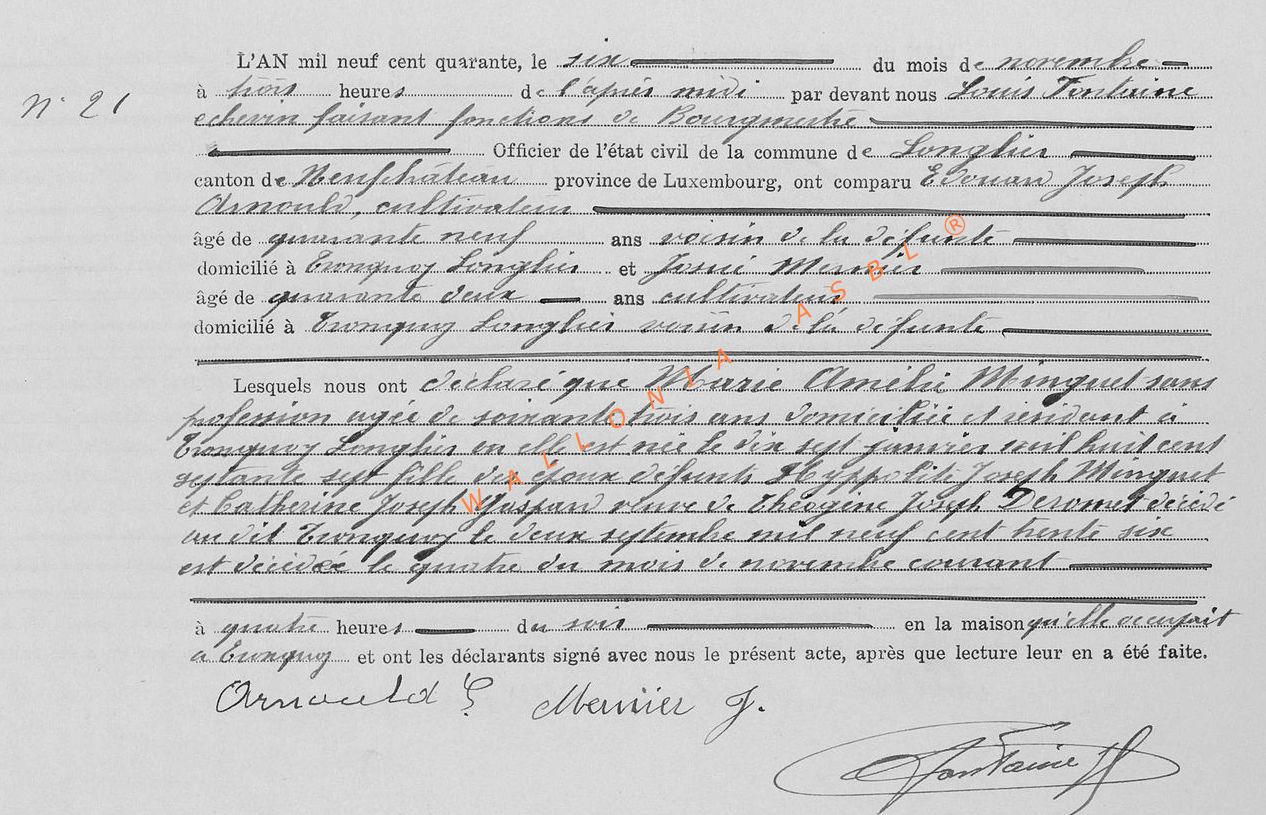 L'AN mil neuf cent quarante, le six du mois de novembre
N° 21
à trois heures de l'après midi par devant nous Louis Fontaine
echevin faisant fonctions de Bourgmestre
Officier de l'état civil de la commune de Longlier
canton de Neufchâteau province de Luxembourg, ont comparu Edouard Joseph
Arnould, cultivateur
âgé de quarante neuf ans voisin de la défunte
domicilié à Tronquoy Longlier et Josué Mernier
âgé de quarante deux ans cultivateur
domicilié à Tronquoy Longlier voisin de la défunte
Lesquels nous ont déclaré que Marie Amélie Minguet sans
profession agée de soixante trois ans domiciliée et résidant à
Tronquoy Longlier où elle est née le dix sept janvier mil huit cent
septante sept fille des époux défunts Hyppolite Joseph Minguet
et Catherine Joseph Gaspard veuve de Théogène Joseph Deromet décédé
au dit Tronquoy le deux septembre mil neuf cent trente six
est décédée le quatre du mois de novembre courant
à quatre heures du soir en la maison qu'elle occupait
à Tronquoy et ont les déclarants signé avec nous le présent acte, après que lecture leur en a été faite.
Arnould E Mernier J.
Fontaine
WALLONIA ASBL ®